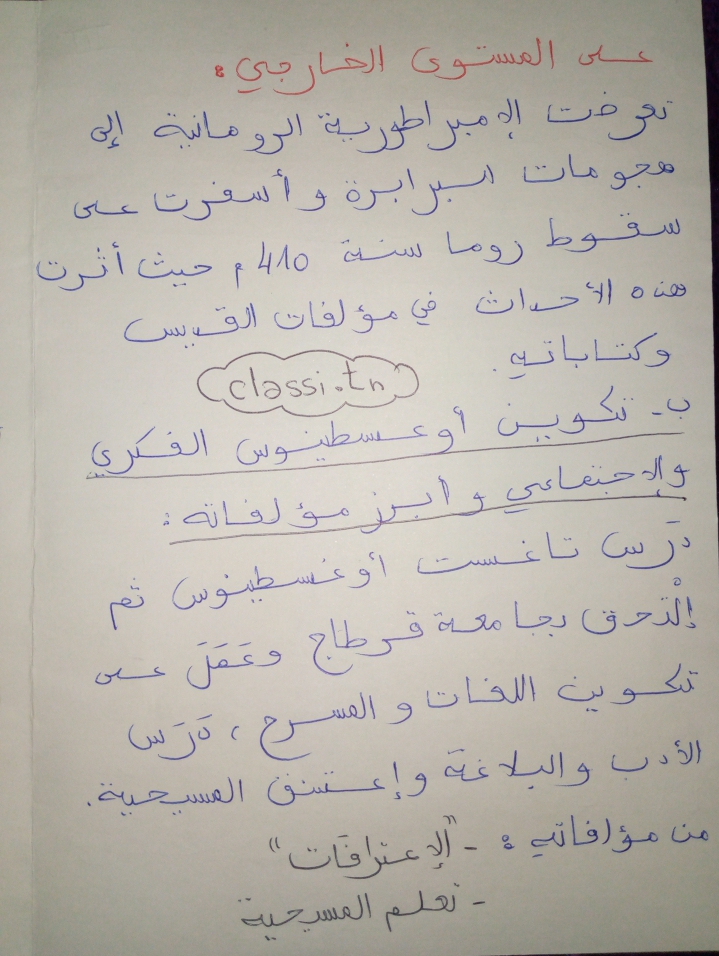 على المستوى الخارجي:
تعرضت الإمبراطورية الرومانية إلى
هجومات البرابرة وأسفرت على
سقوط روما سنة 410م حيث أثرت
هذه الأحداث في مؤلفات القديس
وكتاباته.
classi.tn
ب- تكوين أوغسطينوس الفكري
والإجتماعي وأبرز مؤلفاته:
دَرَس تاغست أوغسطينوس ثم
إلْتحق بجامعة قرطاج وعَمَلَ على
تكوين اللغات والمسرح، دَرَس
الأدب والبلاغة وإعتنق المسيحية.
من مؤلفاته: - "الإعترافات"
- تعلم المسيحية